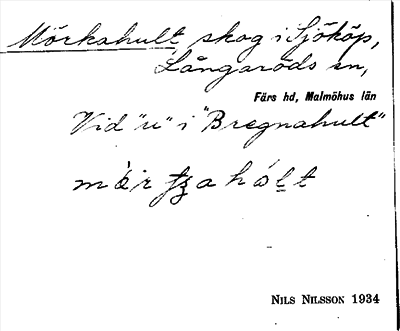 Mörkahult skog i Sjököp,
Långaröds sn,
Färs hd, Malmöhus län
Vid "u" i "Bregnahult"
NILS NILSSON 1934